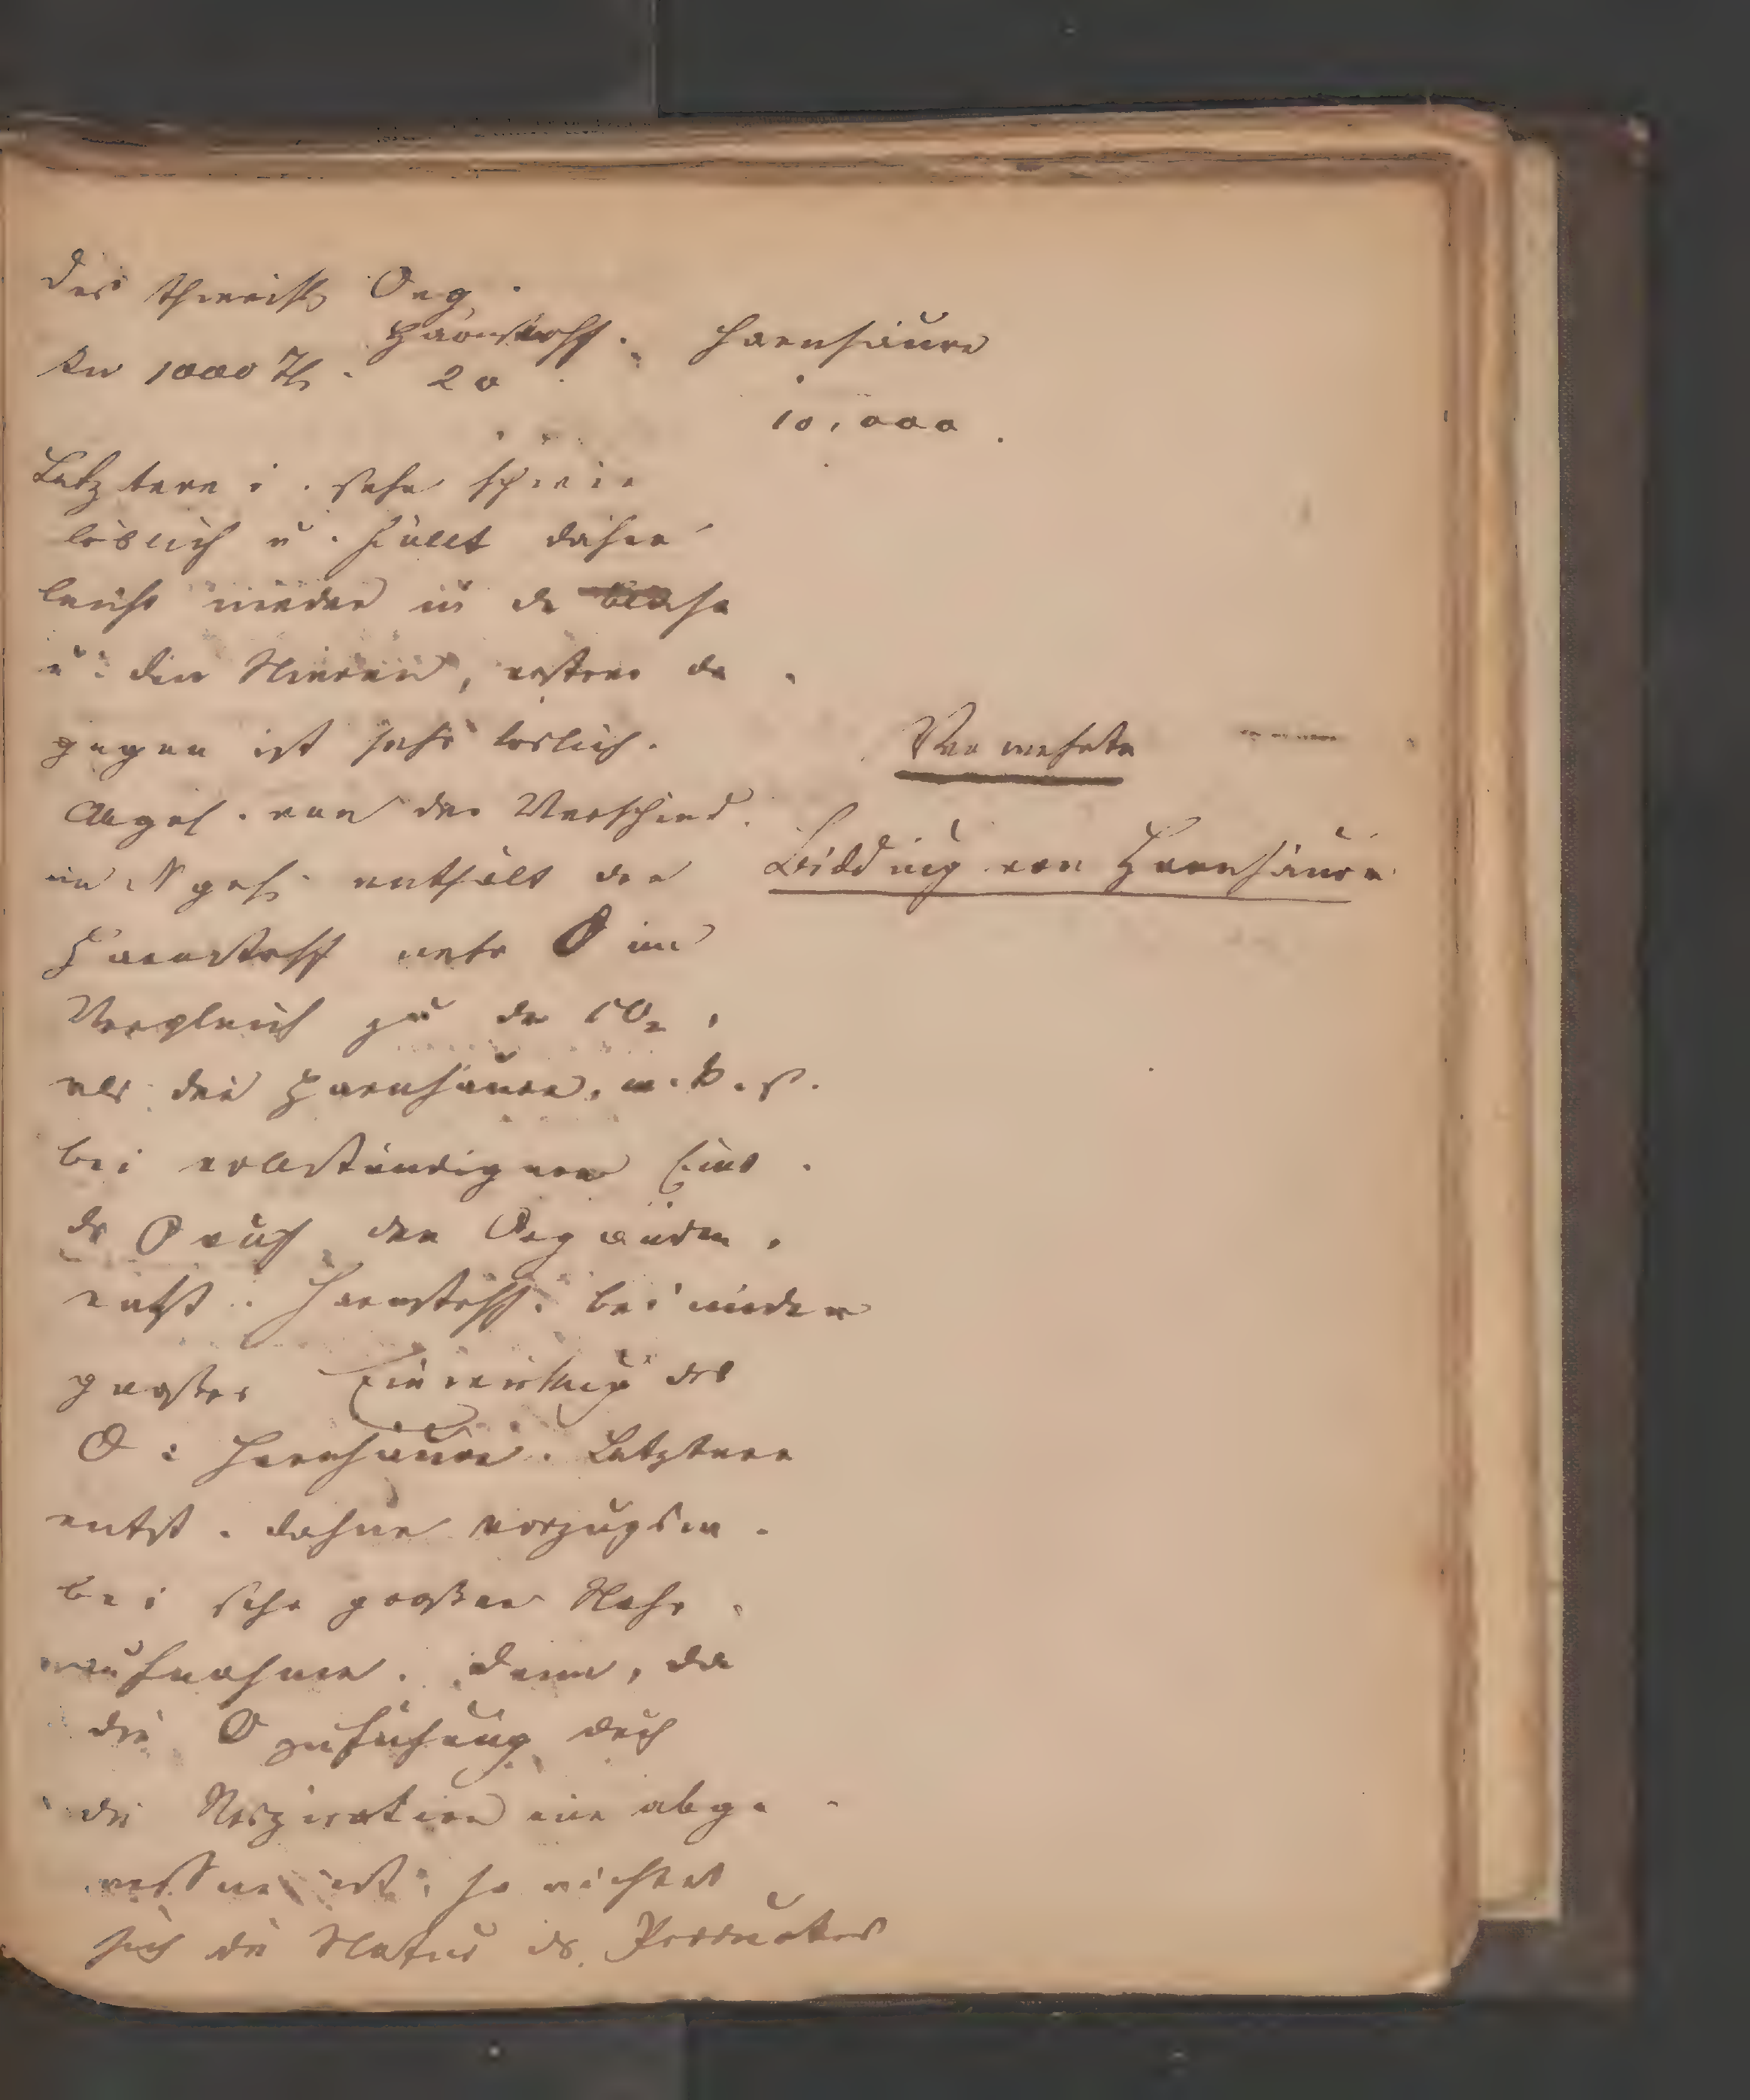 des thierisch Org.
Harnstoff. Harnsäure
In 1000 Th. 20
10,000.
Letztere i. sehr schwer
löslich u. fällt daher
leicht nieder in de Blase
u. den Nieren, erstrer da
gegen ist sehr löslich.
Abges. von der Verschied.
im N geh. enthält der
Harnstoff mehr O im
Vergleich zu de CO2,
als die Harnsäure. m. b. s.
bei vollständigerer Einw.
ds O auf den Organism.
entst. Harnstoff. bei minder
großer Einwirkung des
O : Harnsäure. Letztere
entst. daher vorzugsw.
bei sehr großer Nahr.
aufnahme. denn, da
die O zuführung durch
die Respiration eine abge
messene ist, so richtet
sich die Natur ds. Productes
Vermehrte
Bildung von Harnsäure